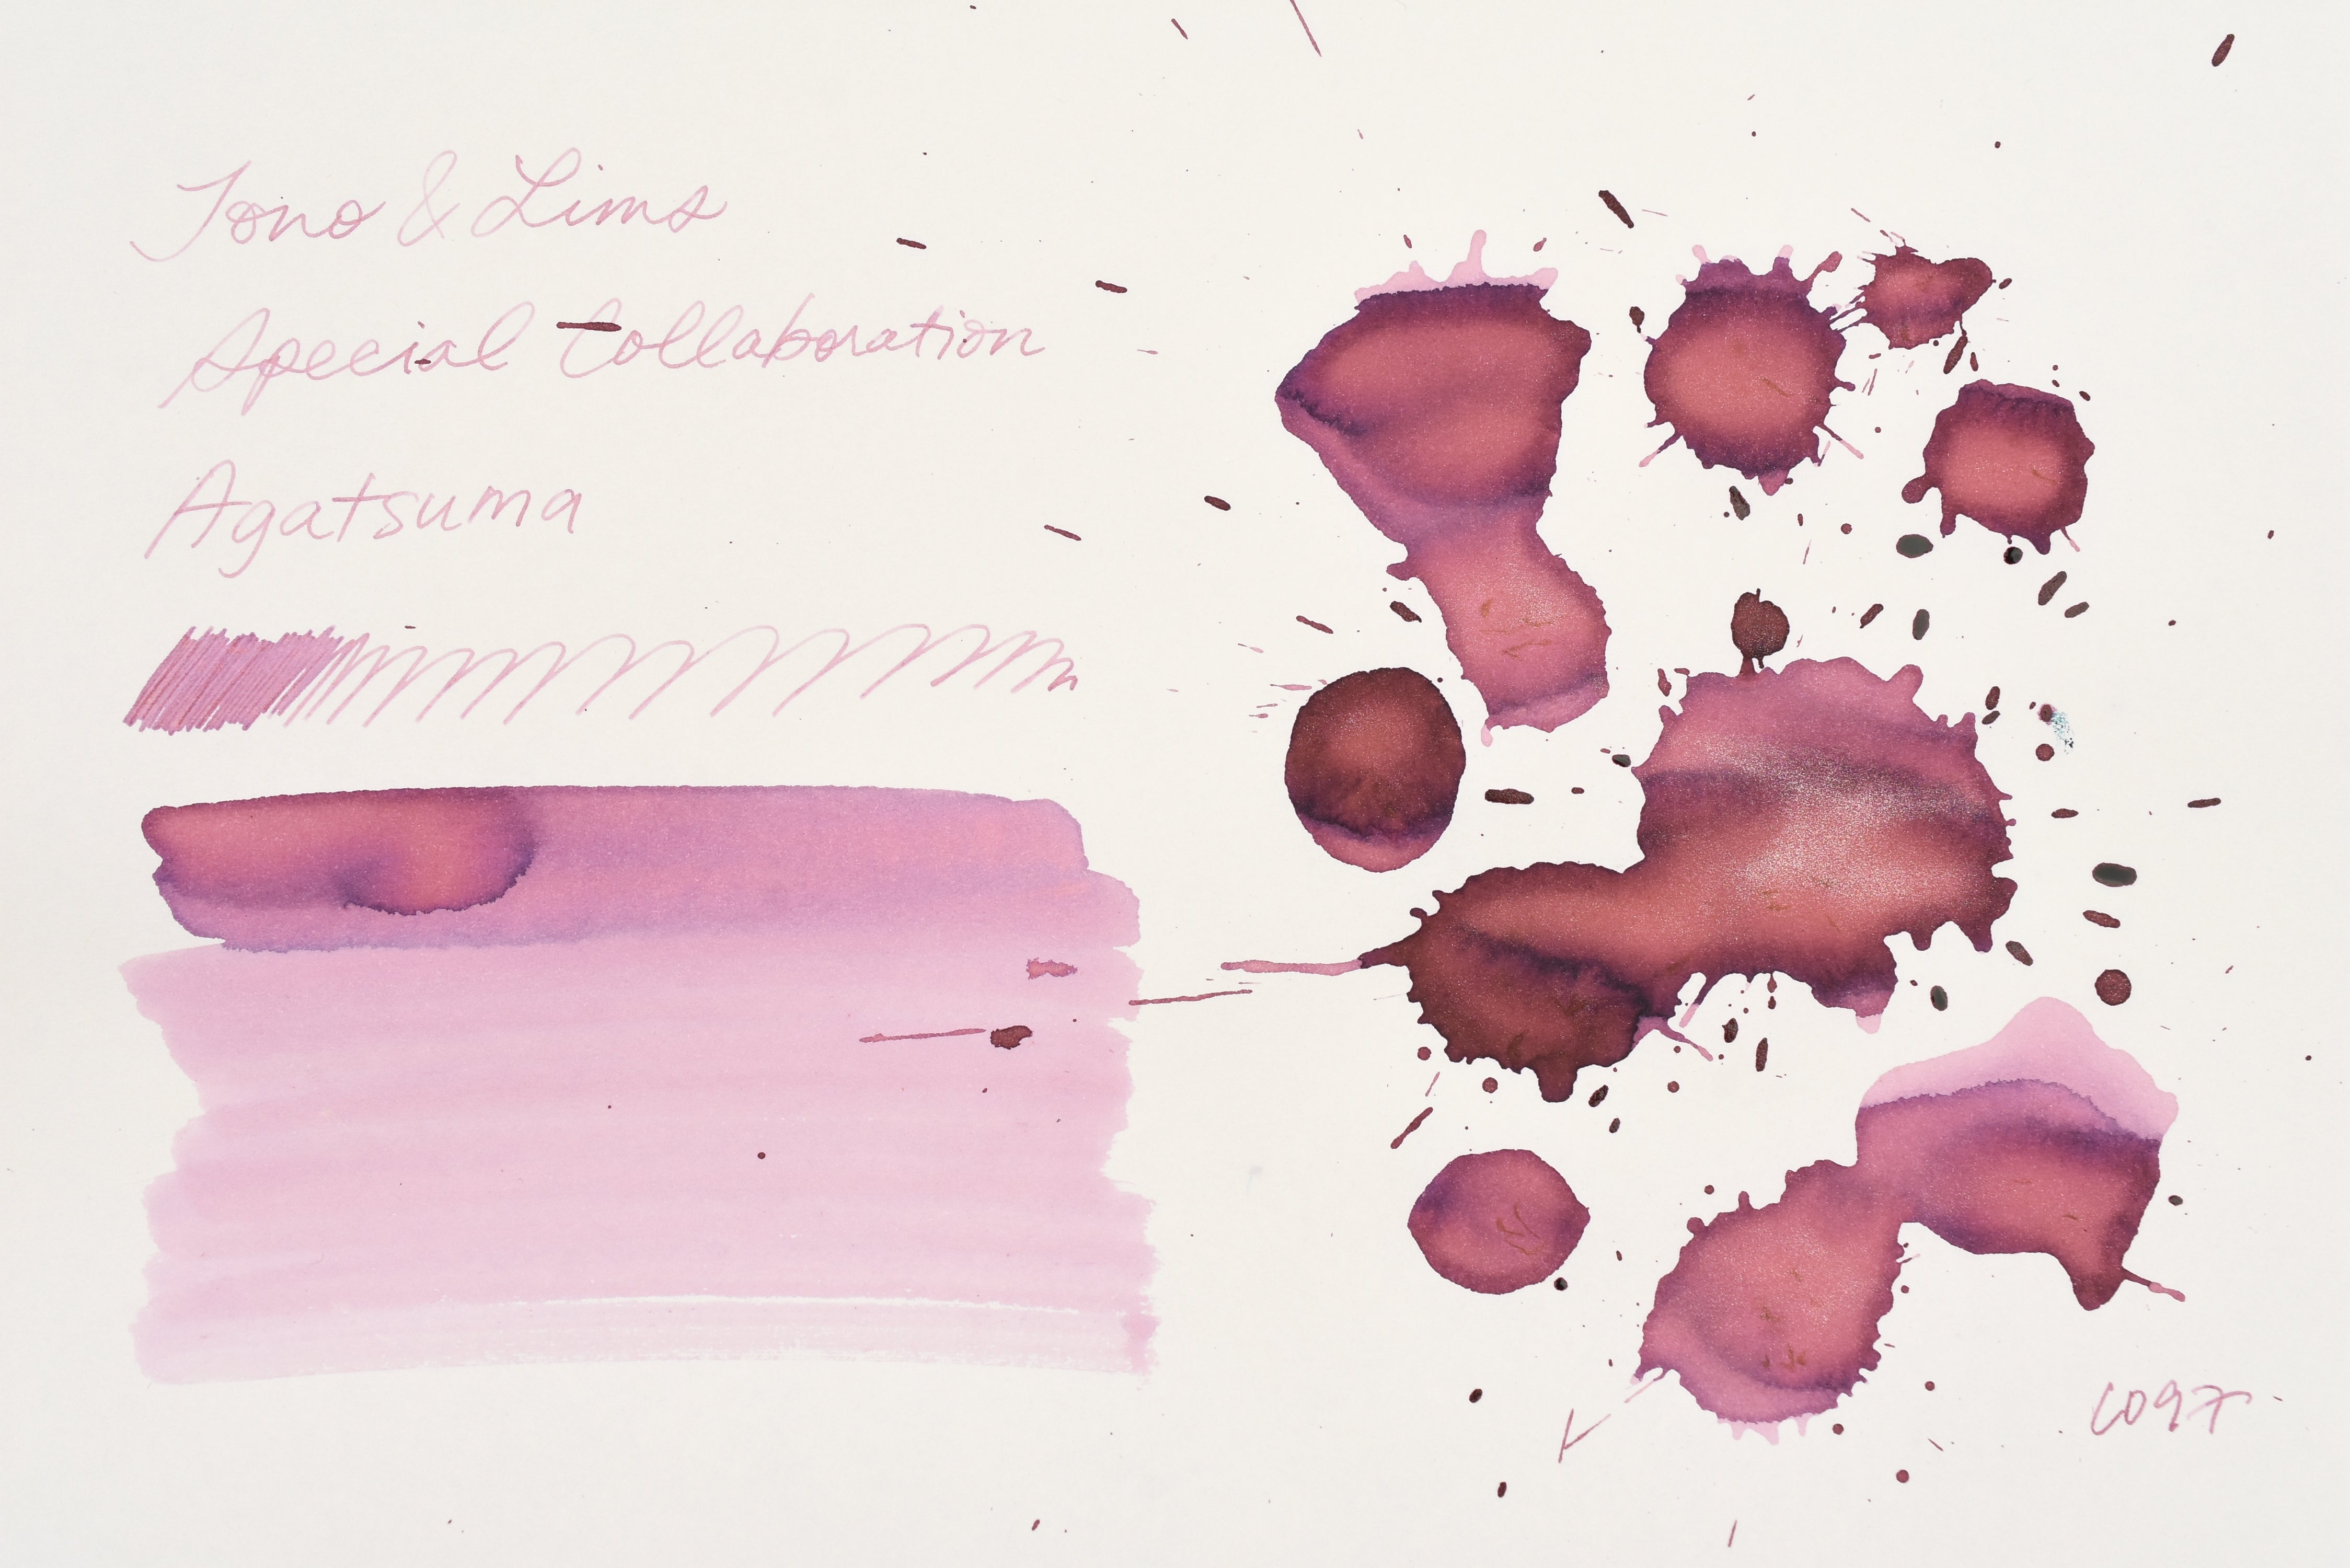 Tono & Lims
Special Collaboration
Agatsuma
C097